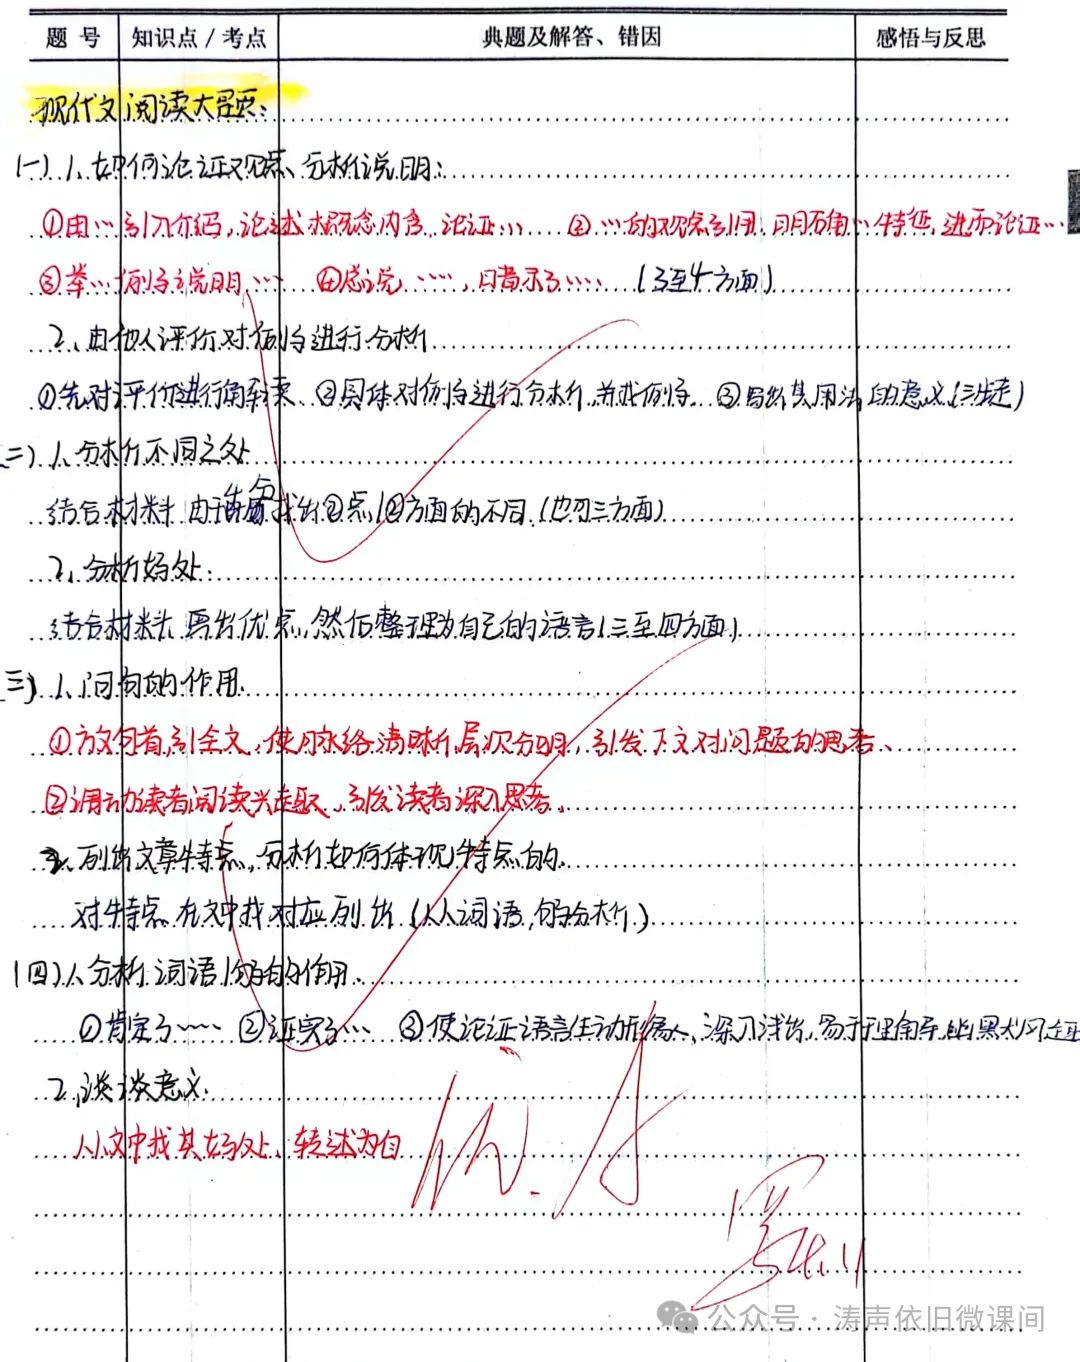 题 号 知识点 / 考点 典题及解答、错因 感悟与反思
现代文阅读大题:
(一) 1、如何论证观点、分析说明:
①由…引入介绍,论述 概念内容,论证…… ②…的观点引用,明确…特征,进而论证…
③举…例子说明…… ④总说……,揭示了…… (3至4方面)
2、由他人评价对例子进行分析
①先对评价进行解读 ②具体对例子进行分析,并找例子 ③写出其用法的意义(三步走)
(二) 1、分析不同之处
结合材料 由 找出②点/②方面的不同(也可三方面)
2、分析好处:
结合材料 写出优点,然后整理为自己的语言(三至四方面)
(三) 1、问句的作用
①放句首,引全文,使脉络清晰,层次分明,引发下文对问题的思考、
②调动读者阅读兴趣,引发读者深入思考。
2、列出文章特点,分析如何体现特点的.
对特点在文中找对应列出(从词语,句分析)
(四) 1、分析词语/句的作用.
①肯定了…… ②证实了… ③使论证语言生动形象,深入浅出,易于理解,幽默风趣
2、谈谈意义:
从文中找其好处、转述为自
优.
公众号 · 涛声依旧微课间